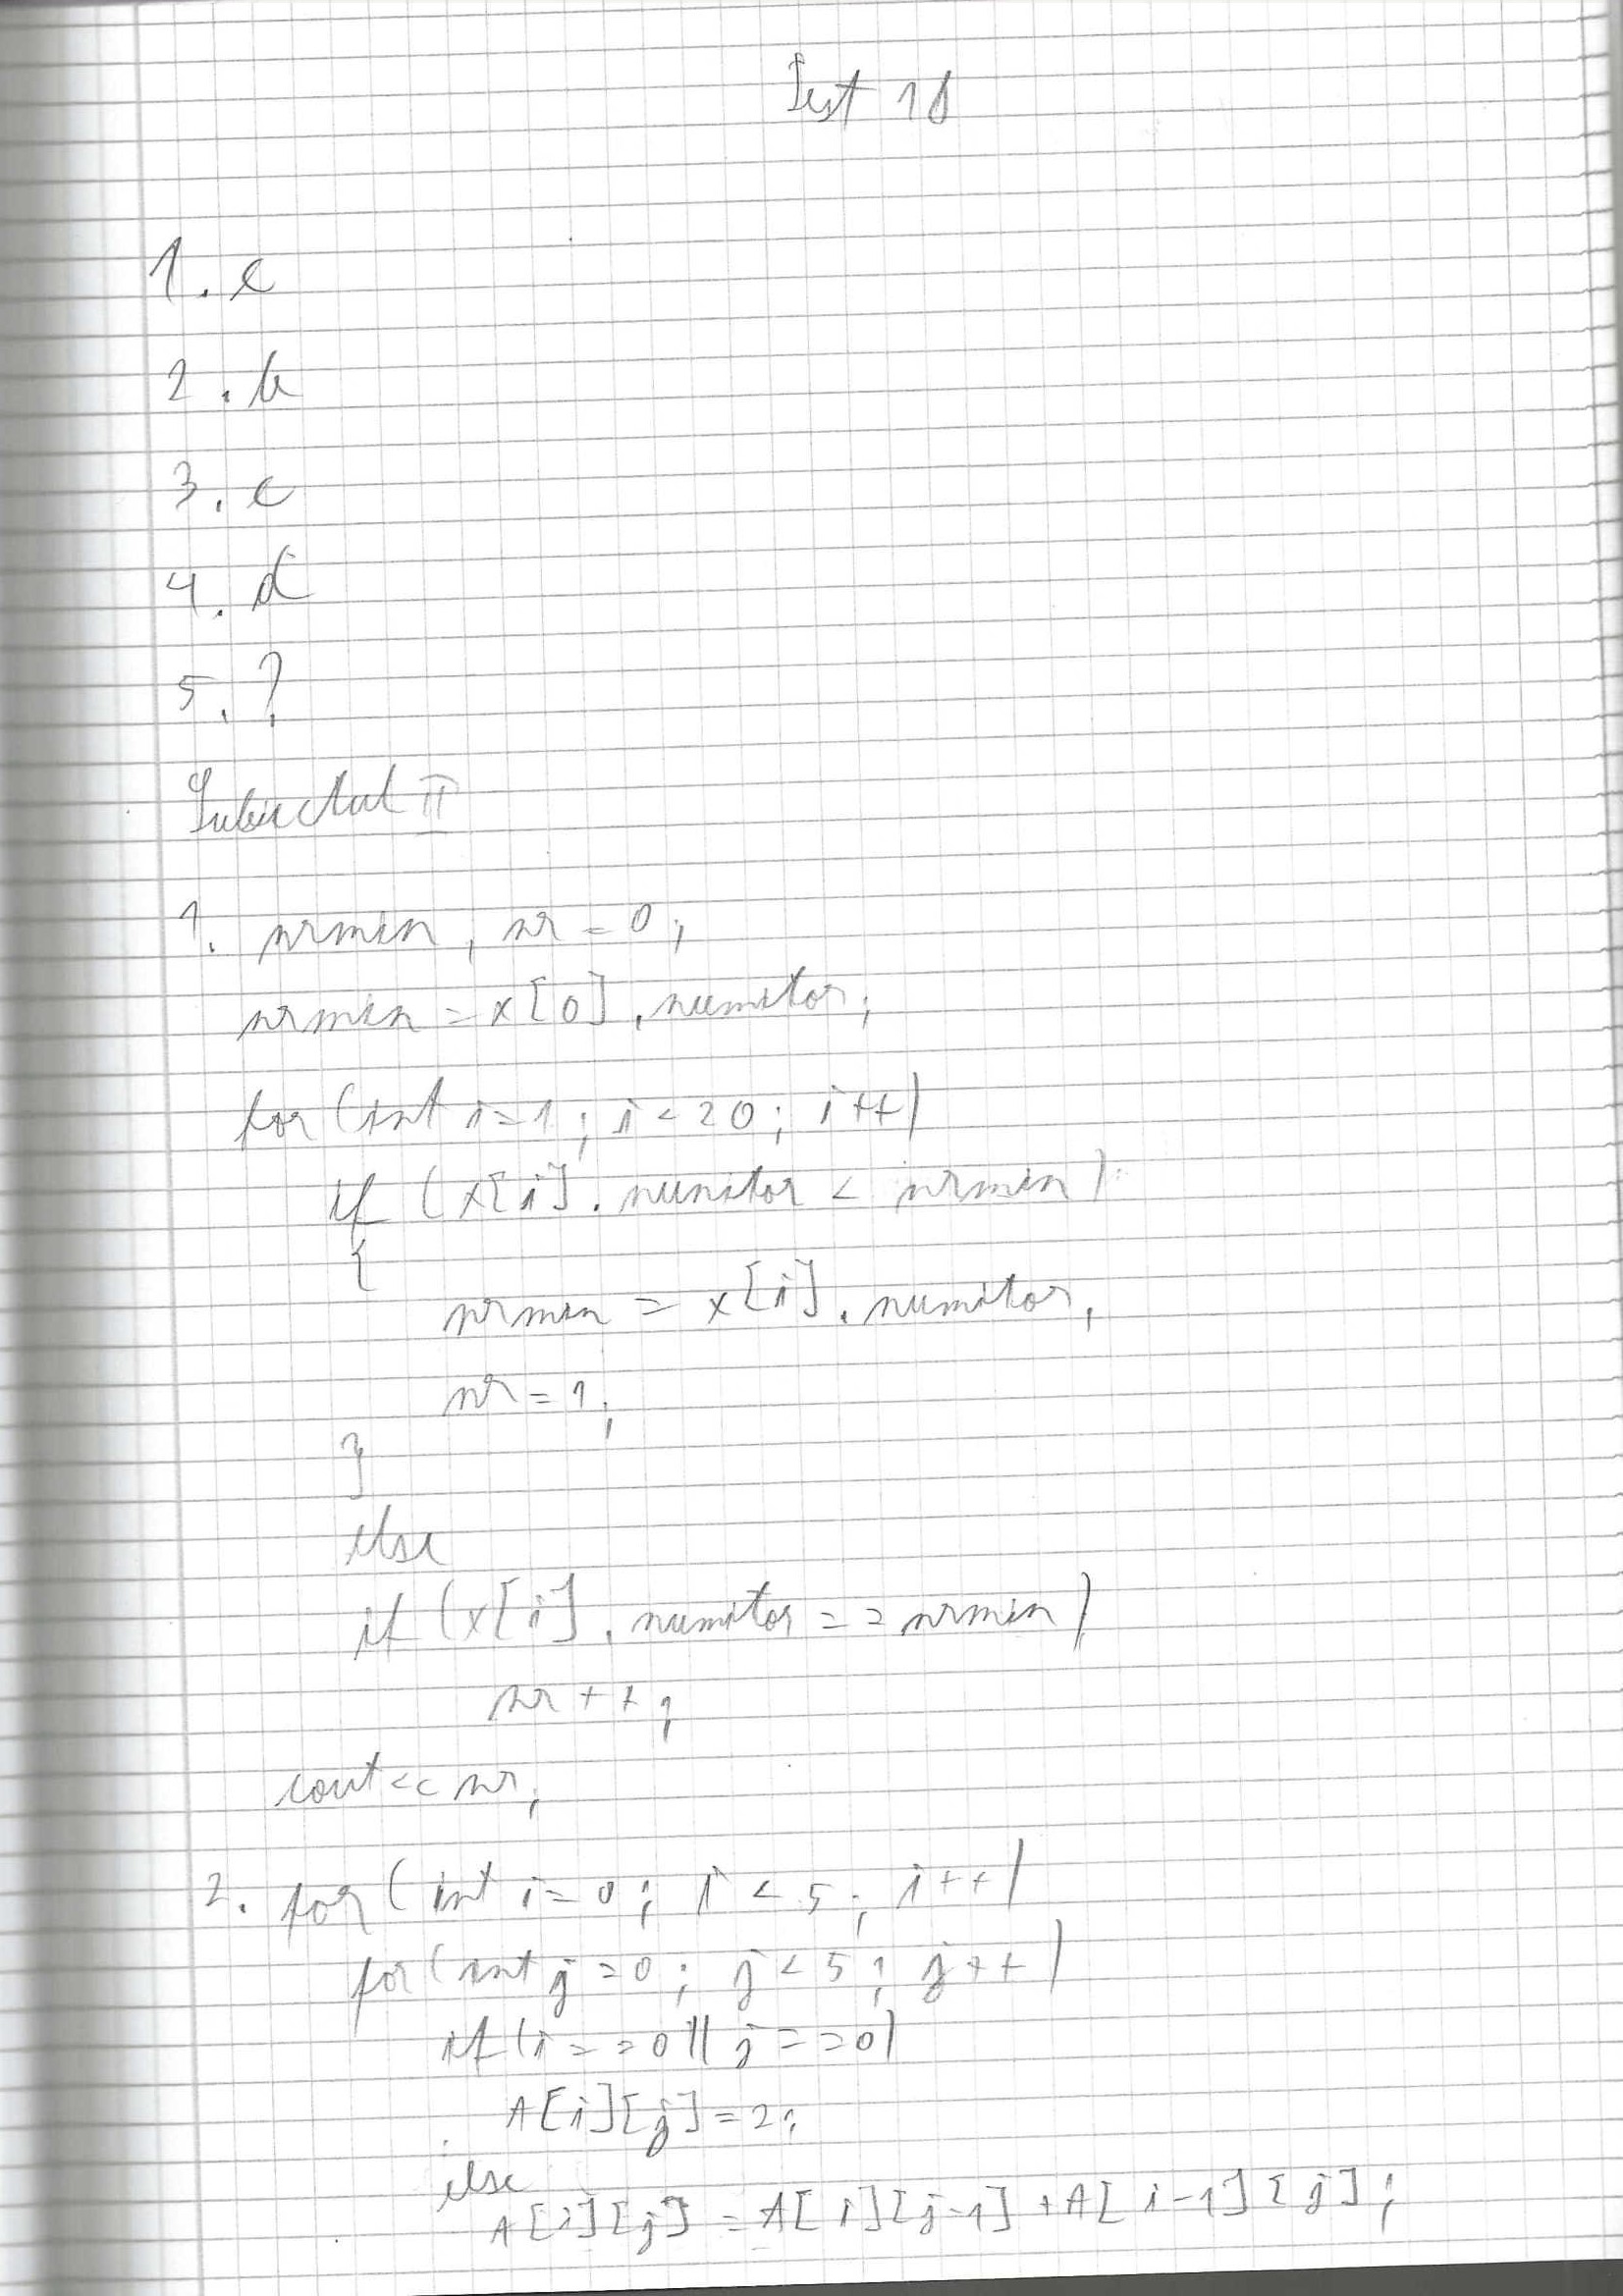 Test 18
1. c
2. b
3. c
4. d
5. ?
Subiectul II
1. nrmin, nr = 0;
nrmin = x[0].numitor;
for (int i=1; i<20; i++)
if (x[i].numitor < nrmin)
{
nrmin = x[i].numitor;
nr = 1;
}
else
if (x[i].numitor == nrmin)
nr++;
cout<<nr;
2. for (int i=0; i<5; i++)
for (int j=0; j<5; j++)
if (i==0 || j==0)
A[i][j]=2;
else
A[i][j] = A[i][j-1] + A[i-1][j];